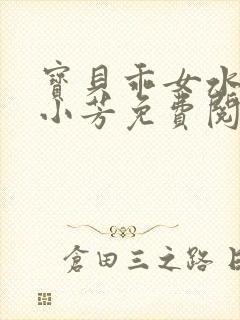 寶貝乖女水
小芳免費閱
倉田三之路